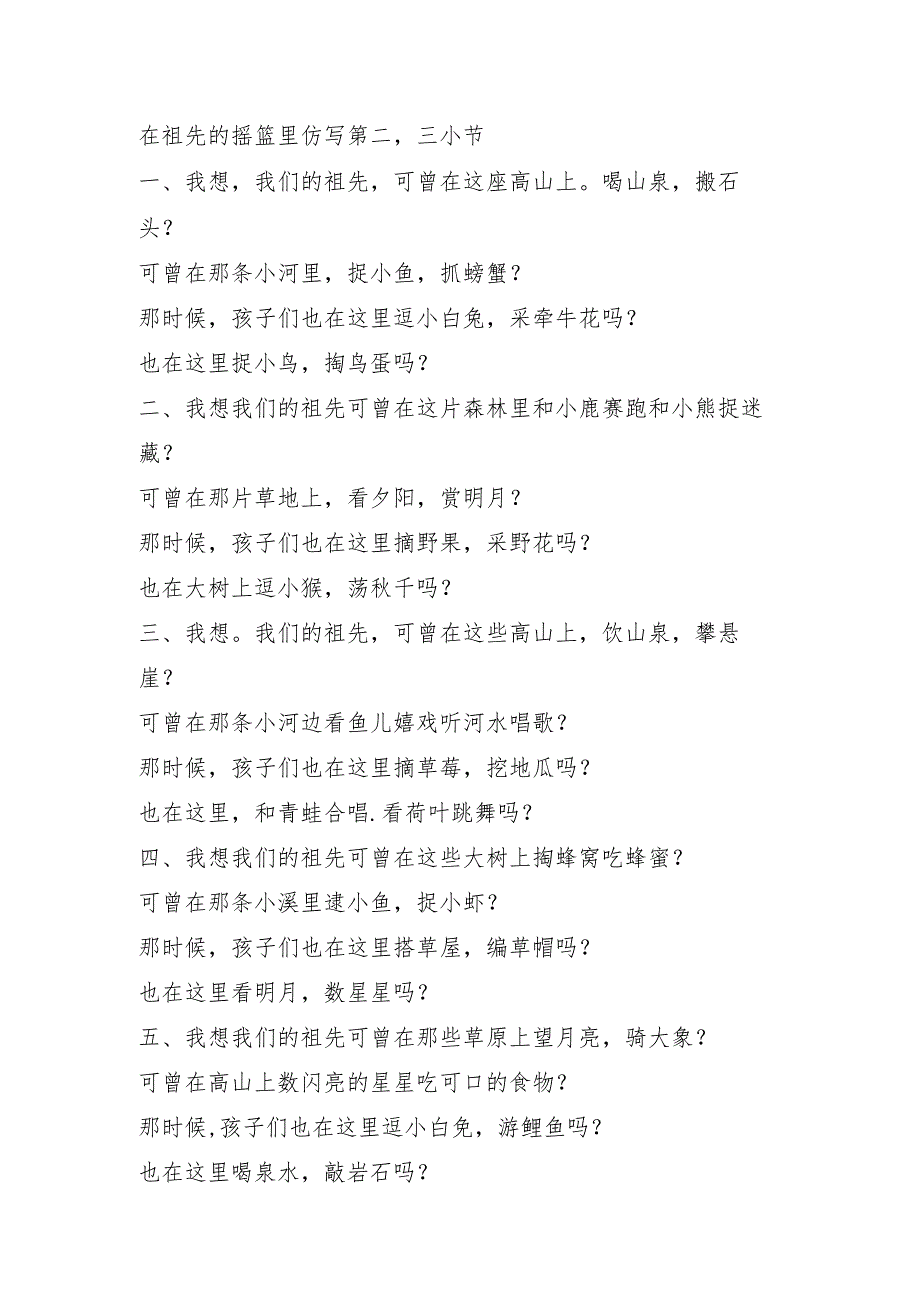 在祖先的摇篮里仿写第二，三小节
一、我想，我们的祖先，可曾在这座高山上。喝山泉，搬石
头？
可曾在那条小河里，捉小鱼，抓螃蟹？
那时候，孩子们也在这里逗小白兔，采牵牛花吗？
也在这里捉小鸟，掏鸟蛋吗？
二、我想我们的祖先可曾在这片森林里和小鹿赛跑和小熊捉迷
藏？
可曾在那片草地上，看夕阳，赏明月？
那时候，孩子们也在这里摘野果，采野花吗？
也在大树上逗小猴，荡秋千吗？
三、我想。我们的祖先，可曾在这些高山上，饮山泉，攀悬
崖？
可曾在那条小河边看鱼儿嬉戏听河水唱歌？
那时候，孩子们也在这里摘草莓，挖地瓜吗？
也在这里，和青蛙合唱.看荷叶跳舞吗？
四、我想我们的祖先可曾在这些大树上掏蜂窝吃蜂蜜？
可曾在那条小溪里逮小鱼，捉小虾？
那时候，孩子们也在这里搭草屋，编草帽吗？
也在这里看明月，数星星吗？
五、我想我们的祖先可曾在那些草原上望月亮，骑大象？
可曾在高山上数闪亮的星星吃可口的食物？
那时候,孩子们也在这里逗小白免，游鲤鱼吗？
也在这里喝泉水，敲岩石吗？